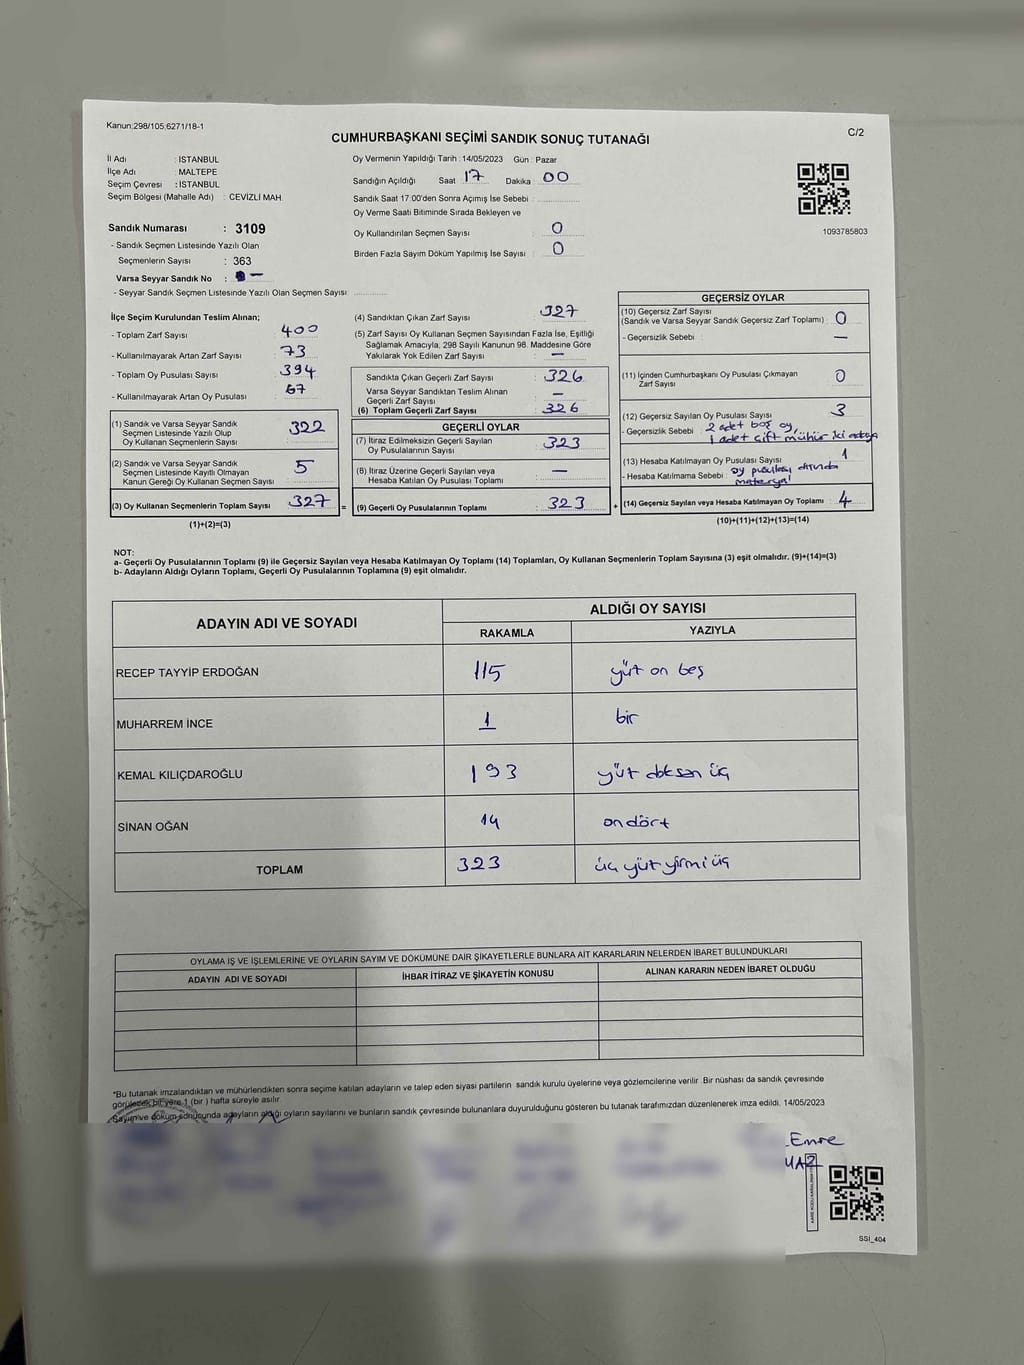 Kanun:298/105;6271/18-1
C/2
CUMHURBAŞKANI SEÇİMİ SANDIK SONUÇ TUTANAĞI
İl Adı : İSTANBUL
İlçe Adı : MALTEPE
Seçim Çevresi : İSTANBUL
Seçim Bölgesi (Mahalle Adı) : CEVİZLİ MAH.
Sandık Numarası : 3109
- Sandık Seçmen Listesinde Yazılı Olan
Seçmenlerin Sayısı : 363
Varsa Seyyar Sandık No : -
- Seyyar Sandık Seçmen Listesinde Yazılı Olan Seçmen Sayısı:
Oy Vermenin Yapıldığı Tarih : 14/05/2023 Gün : Pazar
Sandığın Açıldığı Saat 17 Dakika : 00
Sandık Saat 17:00'den Sonra Açımış İse Sebebi :
Oy Verme Saati Bitiminde Sırada Bekleyen ve
Oy Kullandırılan Seçmen Sayısı : 0
Birden Fazla Sayım Döküm Yapılmış İse Sayısı : 0
1093785803
İlçe Seçim Kurulundan Teslim Alınan;
- Toplam Zarf Sayısı : 400
- Kullanılmayarak Artan Zarf Sayısı : 73
- Toplam Oy Pusulası Sayısı : 394
- Kullanılmayarak Artan Oy Pusulası : 67
(1) Sandık ve Varsa Seyyar Sandık
Seçmen Listesinde Yazılı Olup
Oy Kullanan Seçmenlerin Sayısı : 322
(2) Sandık ve Varsa Seyyar Sandık
Seçmen Listesinde Kayıtlı Olmayan
Kanun Gereği Oy Kullanan Seçmen Sayısı : 5
(3) Oy Kullanan Seçmenlerin Toplam Sayısı : 327 =
(1)+(2)=(3)
(4) Sandıktan Çıkan Zarf Sayısı : 327
(5) Zarf Sayısı Oy Kullanan Seçmen Sayısından Fazla İse, Eşitliği
Sağlamak Amacıyla, 298 Sayılı Kanunun 98. Maddesine Göre
Yakılarak Yok Edilen Zarf Sayısı : —
Sandıkta Çıkan Geçerli Zarf Sayısı : 326
Varsa Seyyar Sandıktan Teslim Alınan
Geçerli Zarf Sayısı : —
(6) Toplam Geçerli Zarf Sayısı : 326
GEÇERLİ OYLAR
(7) İtiraz Edilmeksizin Geçerli Sayılan
Oy Pusulalarının Sayısı : 323
(8) İtiraz Üzerine Geçerli Sayılan veya
Hesaba Katılan Oy Pusulası Toplamı : —
(9) Geçerli Oy Pusulalarının Toplamı : 323 +
GEÇERSİZ OYLAR
(10) Geçersiz Zarf Sayısı
(Sandık ve Varsa Seyyar Sandık Geçersiz Zarf Toplamı) : 0
- Geçersizlik Sebebi : —
(11) İçinden Cumhurbaşkanı Oy Pusulası Çıkmayan
Zarf Sayısı : 0
(12) Geçersiz Sayılan Oy Pusulası Sayısı : 3
- Geçersizlik Sebebi : 2 adet boş oy,
1 adet çift mühür iki adaya
(13) Hesaba Katılmayan Oy Pusulası Sayısı : 1
- Hesaba Katılmama Sebebi : oy pusulası dışında
materyal
(14) Geçersiz Sayılan veya Hesaba Katılmayan Oy Toplamı : 4
(10)+(11)+(12)+(13)=(14)
NOT:
a- Geçerli Oy Pusulalarının Toplamı (9) ile Geçersiz Sayılan veya Hesaba Katılmayan Oy Toplamı (14) Toplamları, Oy Kullanan Seçmenlerin Toplam Sayısına (3) eşit olmalıdır. (9)+(14)=(3)
b- Adayların Aldığı Oyların Toplamı, Geçerli Oy Pusulalarının Toplamına (9) eşit olmalıdır.
ADAYIN ADI VE SOYADI
ALDIĞI OY SAYISI
RAKAMLA YAZIYLA
RECEP TAYYİP ERDOĞAN 115 yüt on beş
MUHARREM İNCE 1 bir
KEMAL KILIÇDAROĞLU 193 yüt doksan üç
SİNAN OĞAN 14 on dört
TOPLAM 323 üç yüt yirmi üç
OYLAMA İŞ VE İŞLEMLERİNE VE OYLARIN SAYIM VE DÖKÜMÜNE DAİR ŞİKAYETLERLE BUNLARA AİT KARARLARIN NELERDEN İBARET BULUNDUKLARI
ADAYIN ADI VE SOYADI İHBAR İTİRAZ VE ŞİKAYETİN KONUSU ALINAN KARARIN NEDEN İBARET OLDUĞU
*Bu tutanak imzalandıktan ve mühürlendikten sonra seçime katılan adayların ve talep eden siyasi partilerin sandık kurulu üyelerine veya gözlemcilerine verilir. Bir nüshası da sandık çevresinde
görülecek bir yere 1 (bir ) hafta süreyle asılır.
Sayım ve döküm sonucunda adayların aldığı oyların sayılarını ve bunların sandık çevresinde bulunanlara duyurulduğunu gösteren bu tutanak tarafımızdan düzenlenerek imza edildi. 14/05/2023
Emre
SSI_404